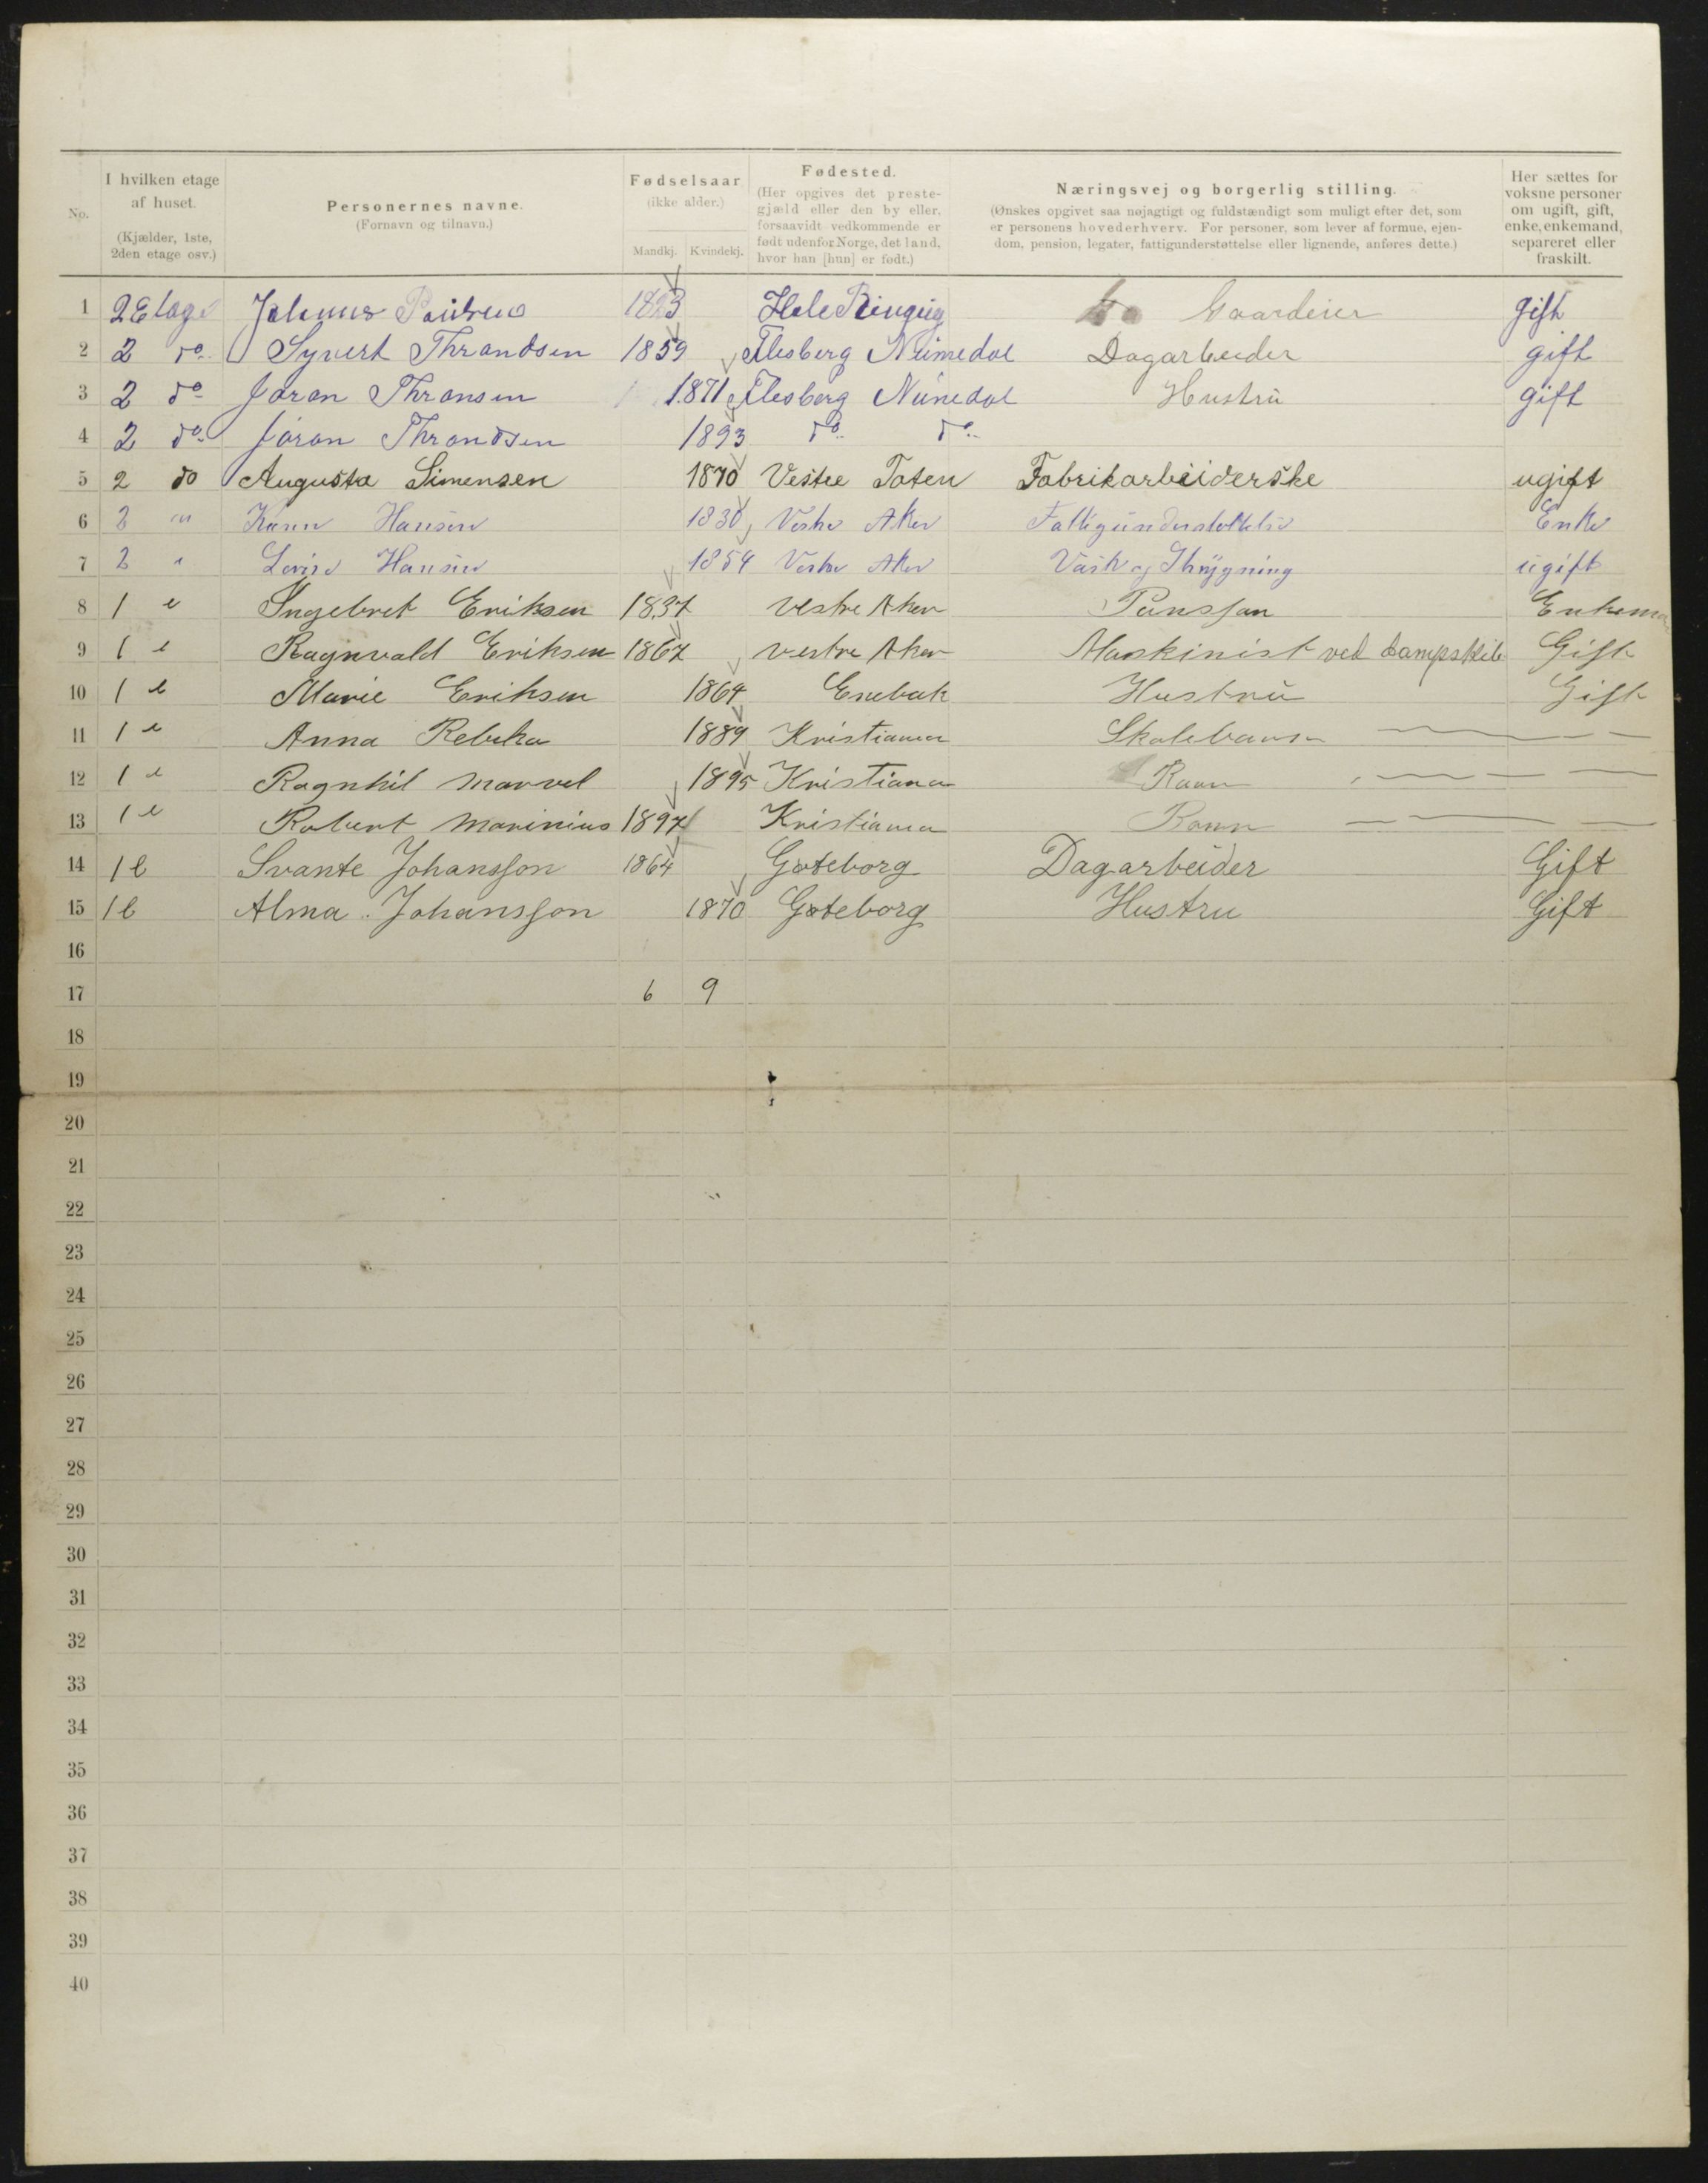 No.
I hvilken etage af huset.
(Kjælder, 1ste, 2den etage osv.)
Personernes navne.
(Fornavn og tilnavn.)
Fødselsaar
(ikke alder.)
Mandkj. Kvindekj.
Fødested.
(Her opgives det preste-
gjæld eller den by eller,
forsaavidt vedkommende er
født udenfor Norge, det land,
hvor han [hun] er født.)
Næringsvej og borgerlig stilling.
(Ønskes opgivet saa nøjagtigt og fuldstændigt som muligt efter det, som
er personens hovederhverv. For personer, som lever af formue, ejen-
dom, pension, legater, fattigunderstøttelse eller lignende, anføres dette.)
Her sættes for
voksne personer
om ugift, gift,
enke, enkemand,
separeret eller
fraskilt.
1 2 Etage 1823 Hole Gaardeier gift
2 2 do Syvert Thrandsen 1859 Flesberg Numedal Dagarbeider gift
3 2 do Jøran Thransen 1871 Flesberg Numedal Hustru gift
4 2 do Jøran Thrandsen 1893 do do
5 2 do Augusta Simensen 1870 Vestre Toten Fabrikarbeiderske ugift
6 2 " Karen Hansen 1830 Vestre Aker Enke
7 2 " Lovise Hansen 1854 Vestre Aker Vask og Strygning ugift
8 1 e Ingebret Eriksen 1837 Vestre Aker Pansjon
9 1 e Ragnvald Eriksen 1867 vestre Aker Maskinist ved dampskib Gift
10 1 e Marie Eriksen 1864 Enebak Hustru Gift
11 1 e Anna Rebeka 1889 Kristiania Skolebarn
12 1 e Ragnhil Marvel 1895 Kristiana Barn
13 1 e Robert Marinius 1897 Kristiania Barn
14 1 e Svante Johansson 1864 Gøteborg Dagarbeider Gift
15 1 e Alma Johansson 1870 Gøteborg Hustru Gift
16
17 6 9
18
19
20
21
22
23
24
25
26
27
28
29
30
31
32
33
34
35
36
37
38
39
40